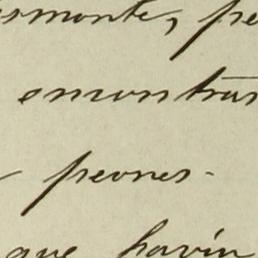 esmonte, pe
encontrar
peones.
que havia